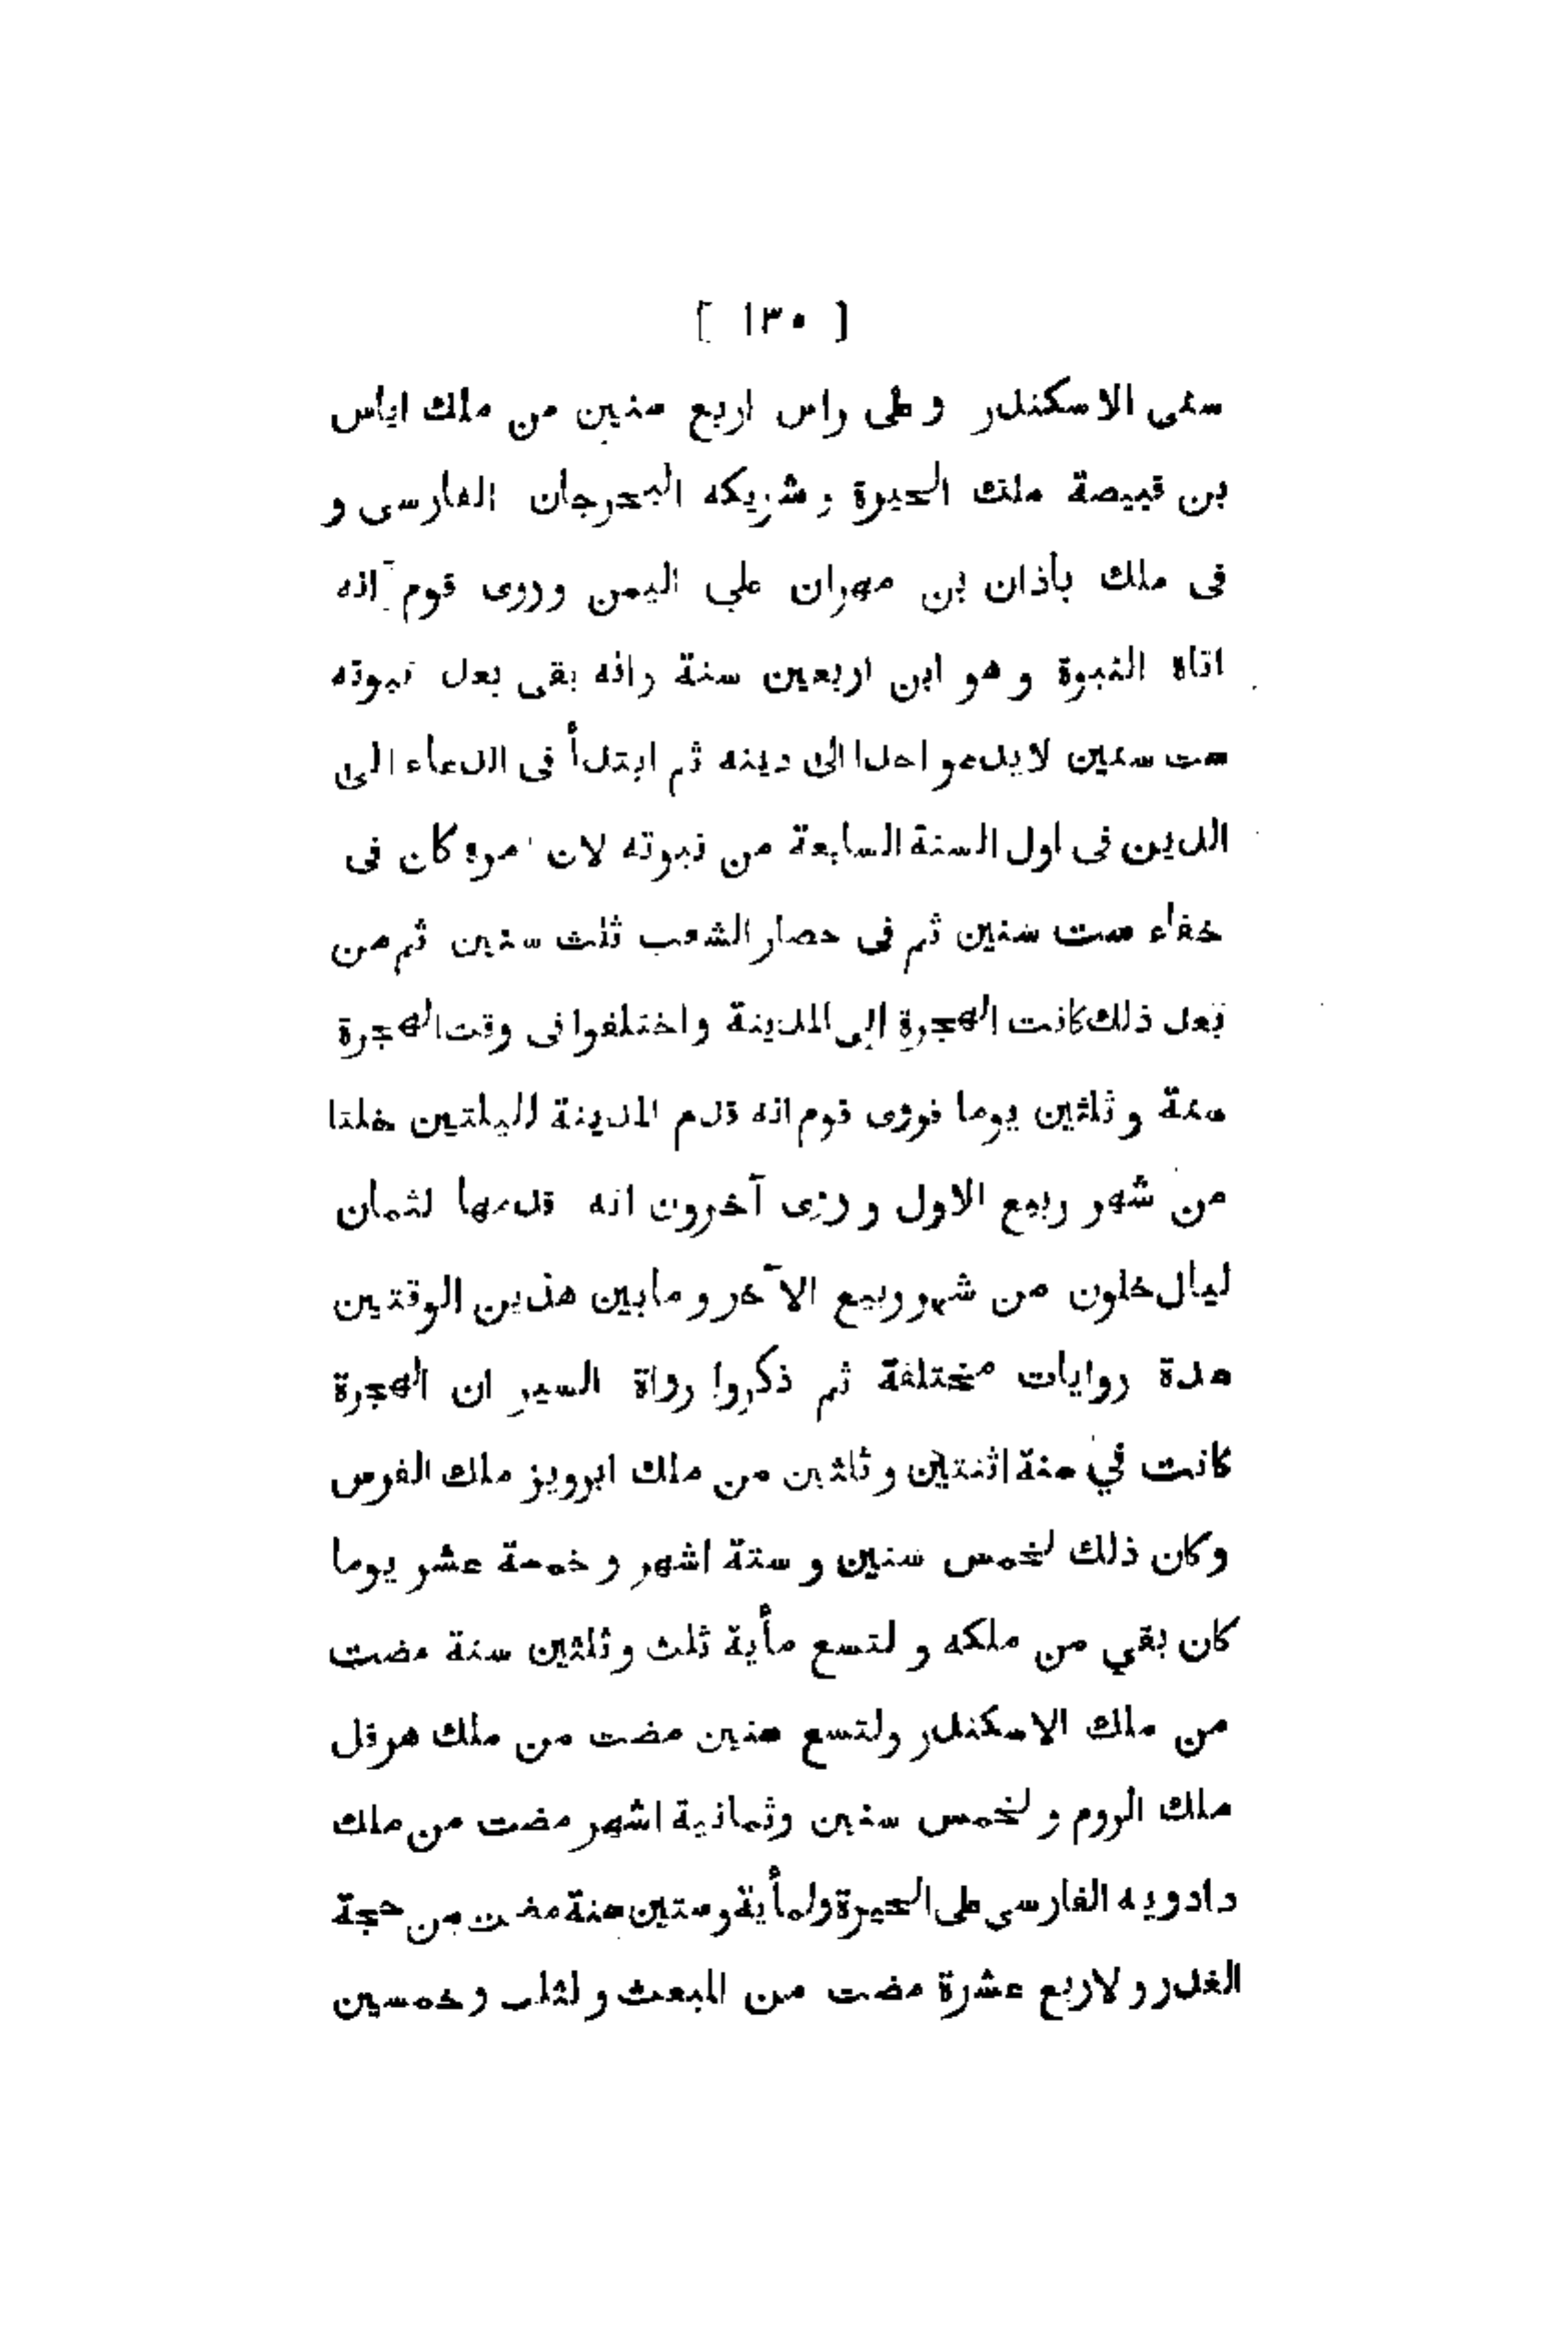 [ ١٣٥ ]
سنى الاسكندر و على راس اربع سنين من ملك اياس
بن قبيصة ملك الحيرة و شريكه البحرجان الفارسى و
فى ملك باذان بن مهران علي اليمن وروى قوم انه
اتاه النبوة و هو ابن اربعين سنة وانه بقى بعد نبوته
ست سنين لا يدعو احدا الى دينه ثم ابتدأ فى الدعاء الى
الدين فى اول السنة السابعة من نبوته لان امره كان فى
خفاء ست سنين ثم فى حصار الشعب ثلث سنين ثم من
بعد ذلك كانت الهجرة الى المدينة و اختلفوا فى وقت الهجرة
ستة و ثلثين يوما فروى قوم انه قدم المدينة لليلتين خلتا
من شهر ربيع الاول و روى آخرون انه قدمها لثمان
ليال خلون من شهر ربيع الآخر و ما بين هذين الوقتين
مدة روايات مختلفة ثم ذكروا رواة السير ان الهجرة
كانت في سنة اثنتين و ثلثين من ملك ابرويز ملك الفرس
وكان ذلك لخمس سنين و ستة اشهر و خمسة عشر يوما
كان بقي من ملكه و لتسع مأية ثلث و ثلثين سنة مضت
من ملك الاسكندر ولتسع سنين مضت من ملك هرقل
ملك الروم و لخمس سنين وثمانية اشهر مضت من ملك
دادويه الفارسى على الحيرة ولمأية وستين سنة مضت من حجة
الغدر و لاربع عشرة مضت من المبعث و لثلث و خمسين